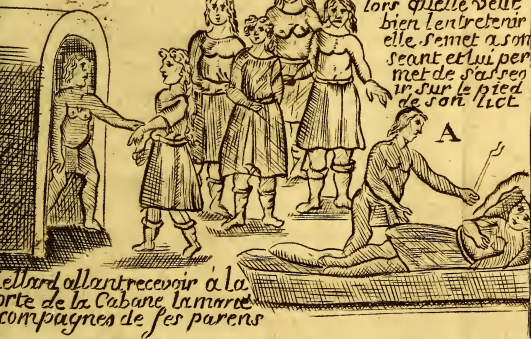 lors qu'elle veut
bien l'entretenir
elle se met a son
seant et lui per
met de s'asseo
ir sur le pied
de son lict
A
ellard allant recevoir à la
orte de la Cabane la marie
compagnes de ses parens